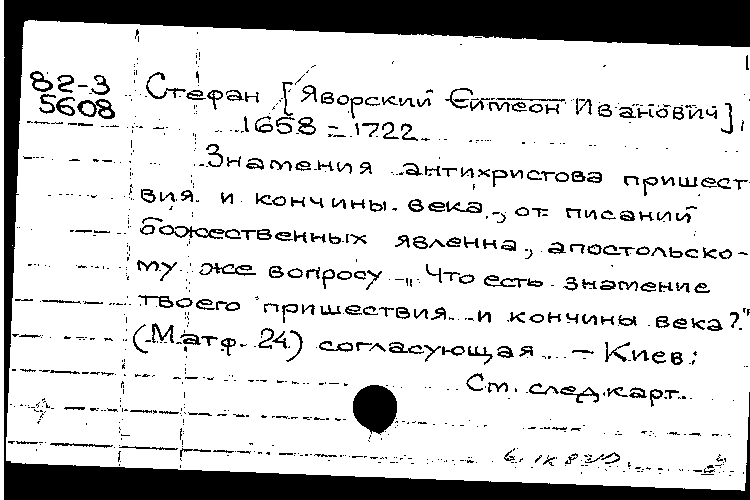 82-3
5608
Стефан [Яворский Симеон Иванович],
1658-1722
Знамения антихристова пришест
вия и кончины века, от писаний
божественных явленна, апостольско-
му же вопросу „Что есть знамение
твоего пришествия и кончины века?"
(Матф. 24) согласующая. - Киев:
См. след. карт.